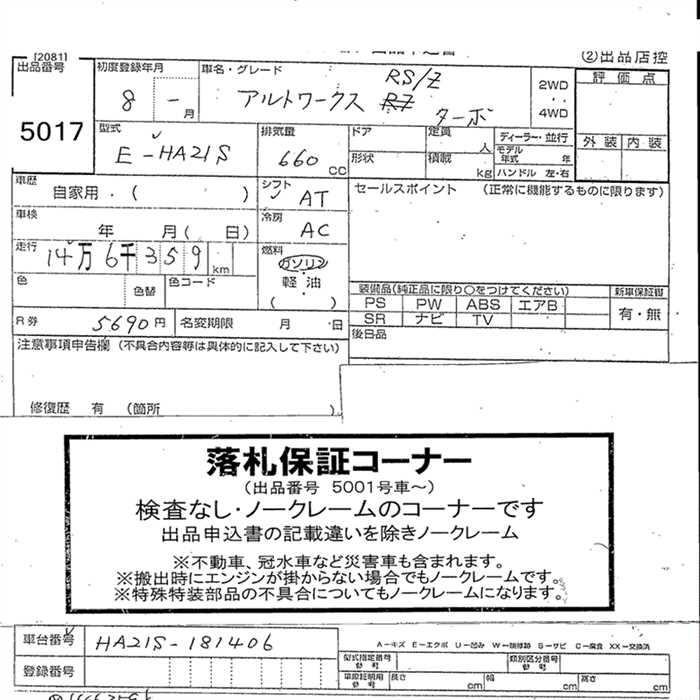 [2081]
②出品店控
出品番号 初度登録年月 車名・グレード 評価点
5017
8 - 月
アルトワークス RS/Z ターボ
2WD
・・
4WD
外装 内装
型式 E-HA21S
排気量 660 CC
ドア 定員 人 ディーラー・並行
モデル年式 年
形状 積載 kg ハンドル 左・右
車歴 自家用・( )
シフト AT
セールスポイント (正常に機能するものに限ります)
車検 年 月( 日)
冷房 AC
走行 14万6千359km
燃料 ガソリン
軽油
( )
色 色替 色コード
装備品(純正品に限り○をつけてください) 新車保証書
PS PW ABS エアB 有・無
SR ナビ TV
R券 5690円 名変期限 月 日
後日品
注意事項申告欄 (不具合内容等は具体的に記入して下さい)
修復歴 有 (箇所 )
落札保証コーナー
(出品番号 5001号車～)
検査なし・ノークレームのコーナーです
出品申込書の記載違いを除きノークレーム
※不動車、冠水車など災害車も含まれます。
※搬出時にエンジンが掛からない場合でもノークレームです。
※特殊特装部品の不具合についてもノークレームになります。
車台番号 HA21S-181406
A-キズ E-エクボ U-凹み W-補修跡 S-サビ C-腐食 XX-交換済
登録番号
型式指定番号 類別区分番号
車庫証明用 長さ cm 幅 cm 高さ cm